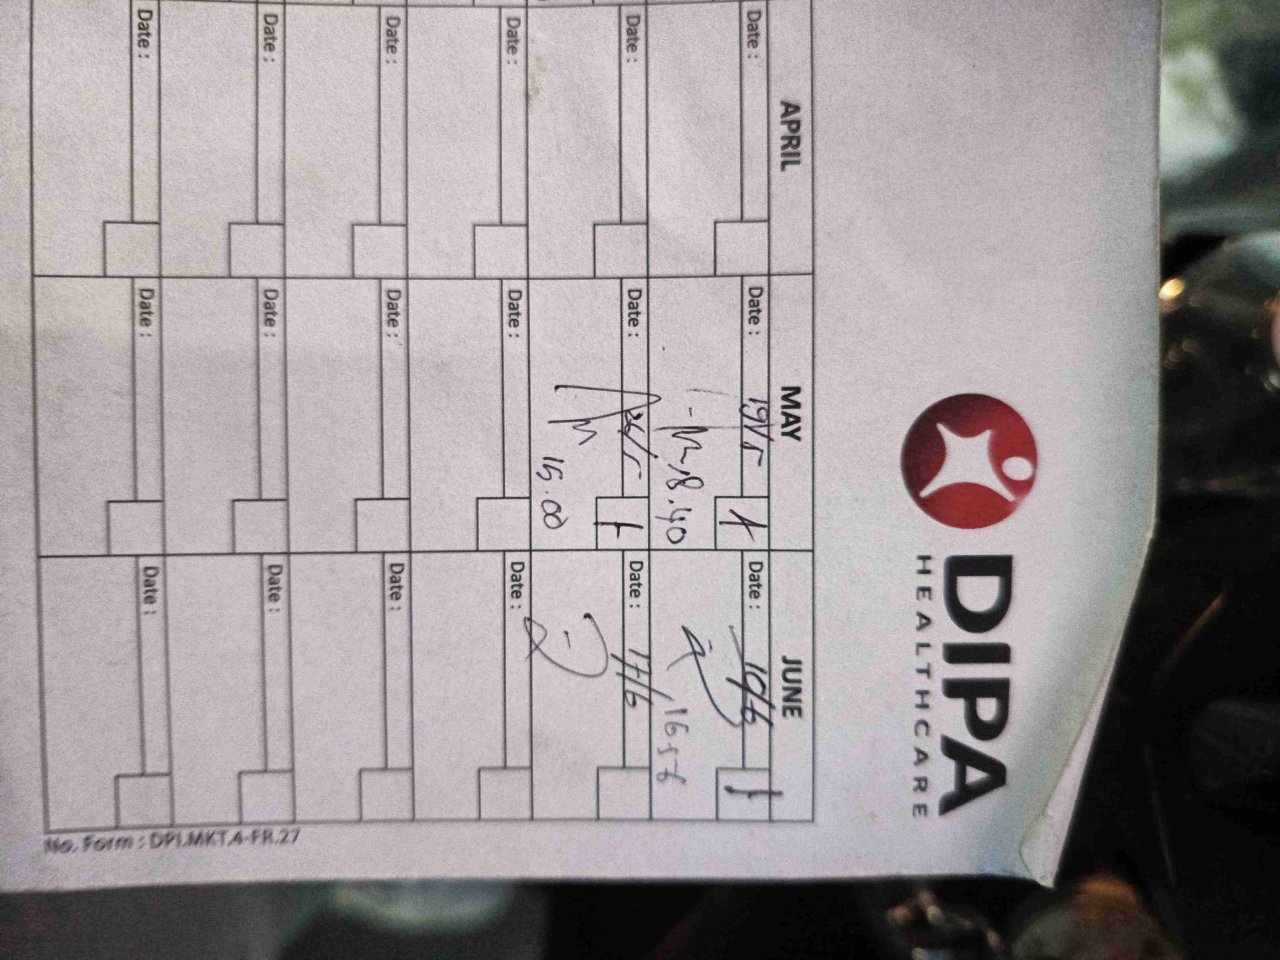 DIPA
HEALTHCARE
APRIL MAY JUNE
Date : Date : 19/5 Date : 10/6
18.40
Date : Date : 26/5 Date : 17/6
15.00
Date : Date : Date :
Date : Date : Date :
Date : Date : Date :
Date : Date : Date :
No. Form : DPI.MKT.4-FR.27